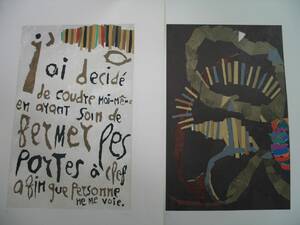 j'
ai decidé
de coudre moi-mê-
en ayant soin de
fermer les
portes à clef
afin que personne
ne me voie.